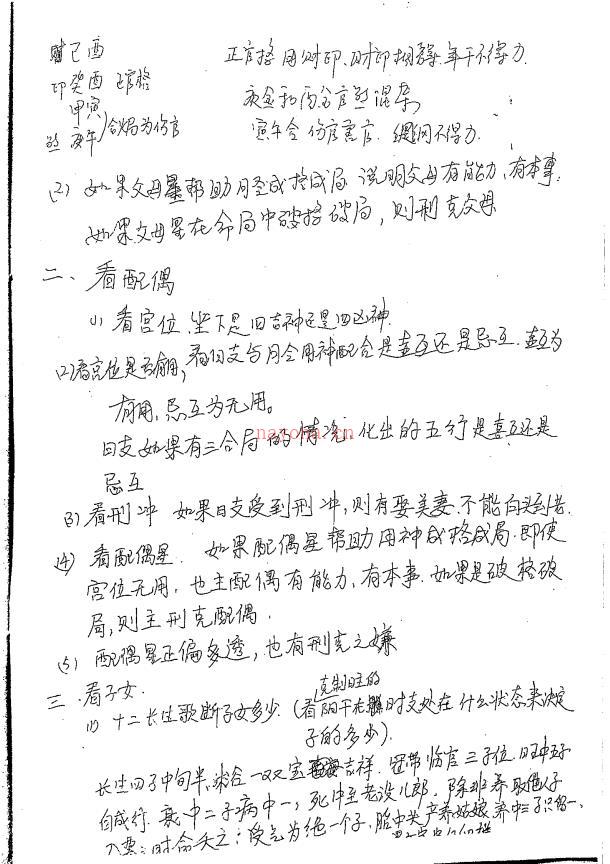 财己酉 正官格用财印、财印相碍、年干不得力
印癸酉 正官格 庚金和酉金官煞混杂
甲寅
煞 庚午 合火局为伤官 寅午合伤官害官 绷网不得力
(2) 如果父母星帮助月令成格成局 说明父母有能力、有本事.
如果父母星在命局中破格破局,则刑克父母
二、看配偶
(1) 看宫位、坐下是四吉神还是四凶神.
(2)看宫位是否有用,看日支与月令用神配合是喜互还是忌互.喜互为
有用,忌互为无用。
日支如果有三合局的情况,化出的五行是喜互还是
忌互
(3)看刑冲 如果日支受到刑冲,则有娶美妻.不能白头到老.
(4) 看配偶星. 如果配偶星帮助用神成格成局.即使
宫位无用,也主配偶有能力、有本事.如果是破格破
局,则主刑克配偶.
(5) 配偶星正偏多透,也有刑克之嫌
三.看子女. 克制日主的
(1) 十二长生歌断子女多少.(看阴干在时支处在什么状态来决定
子的多少).
长生四子中旬半,沐浴一双宝吉祥.冠带临官三子位.旺中五子
自成行.衰中二子病中一,死中至老没儿郎.除非养取他人子
入墓之时命夭亡;受气为绝一个子.胎中头产养姑娘.养中三子只留一.
nayona.cn